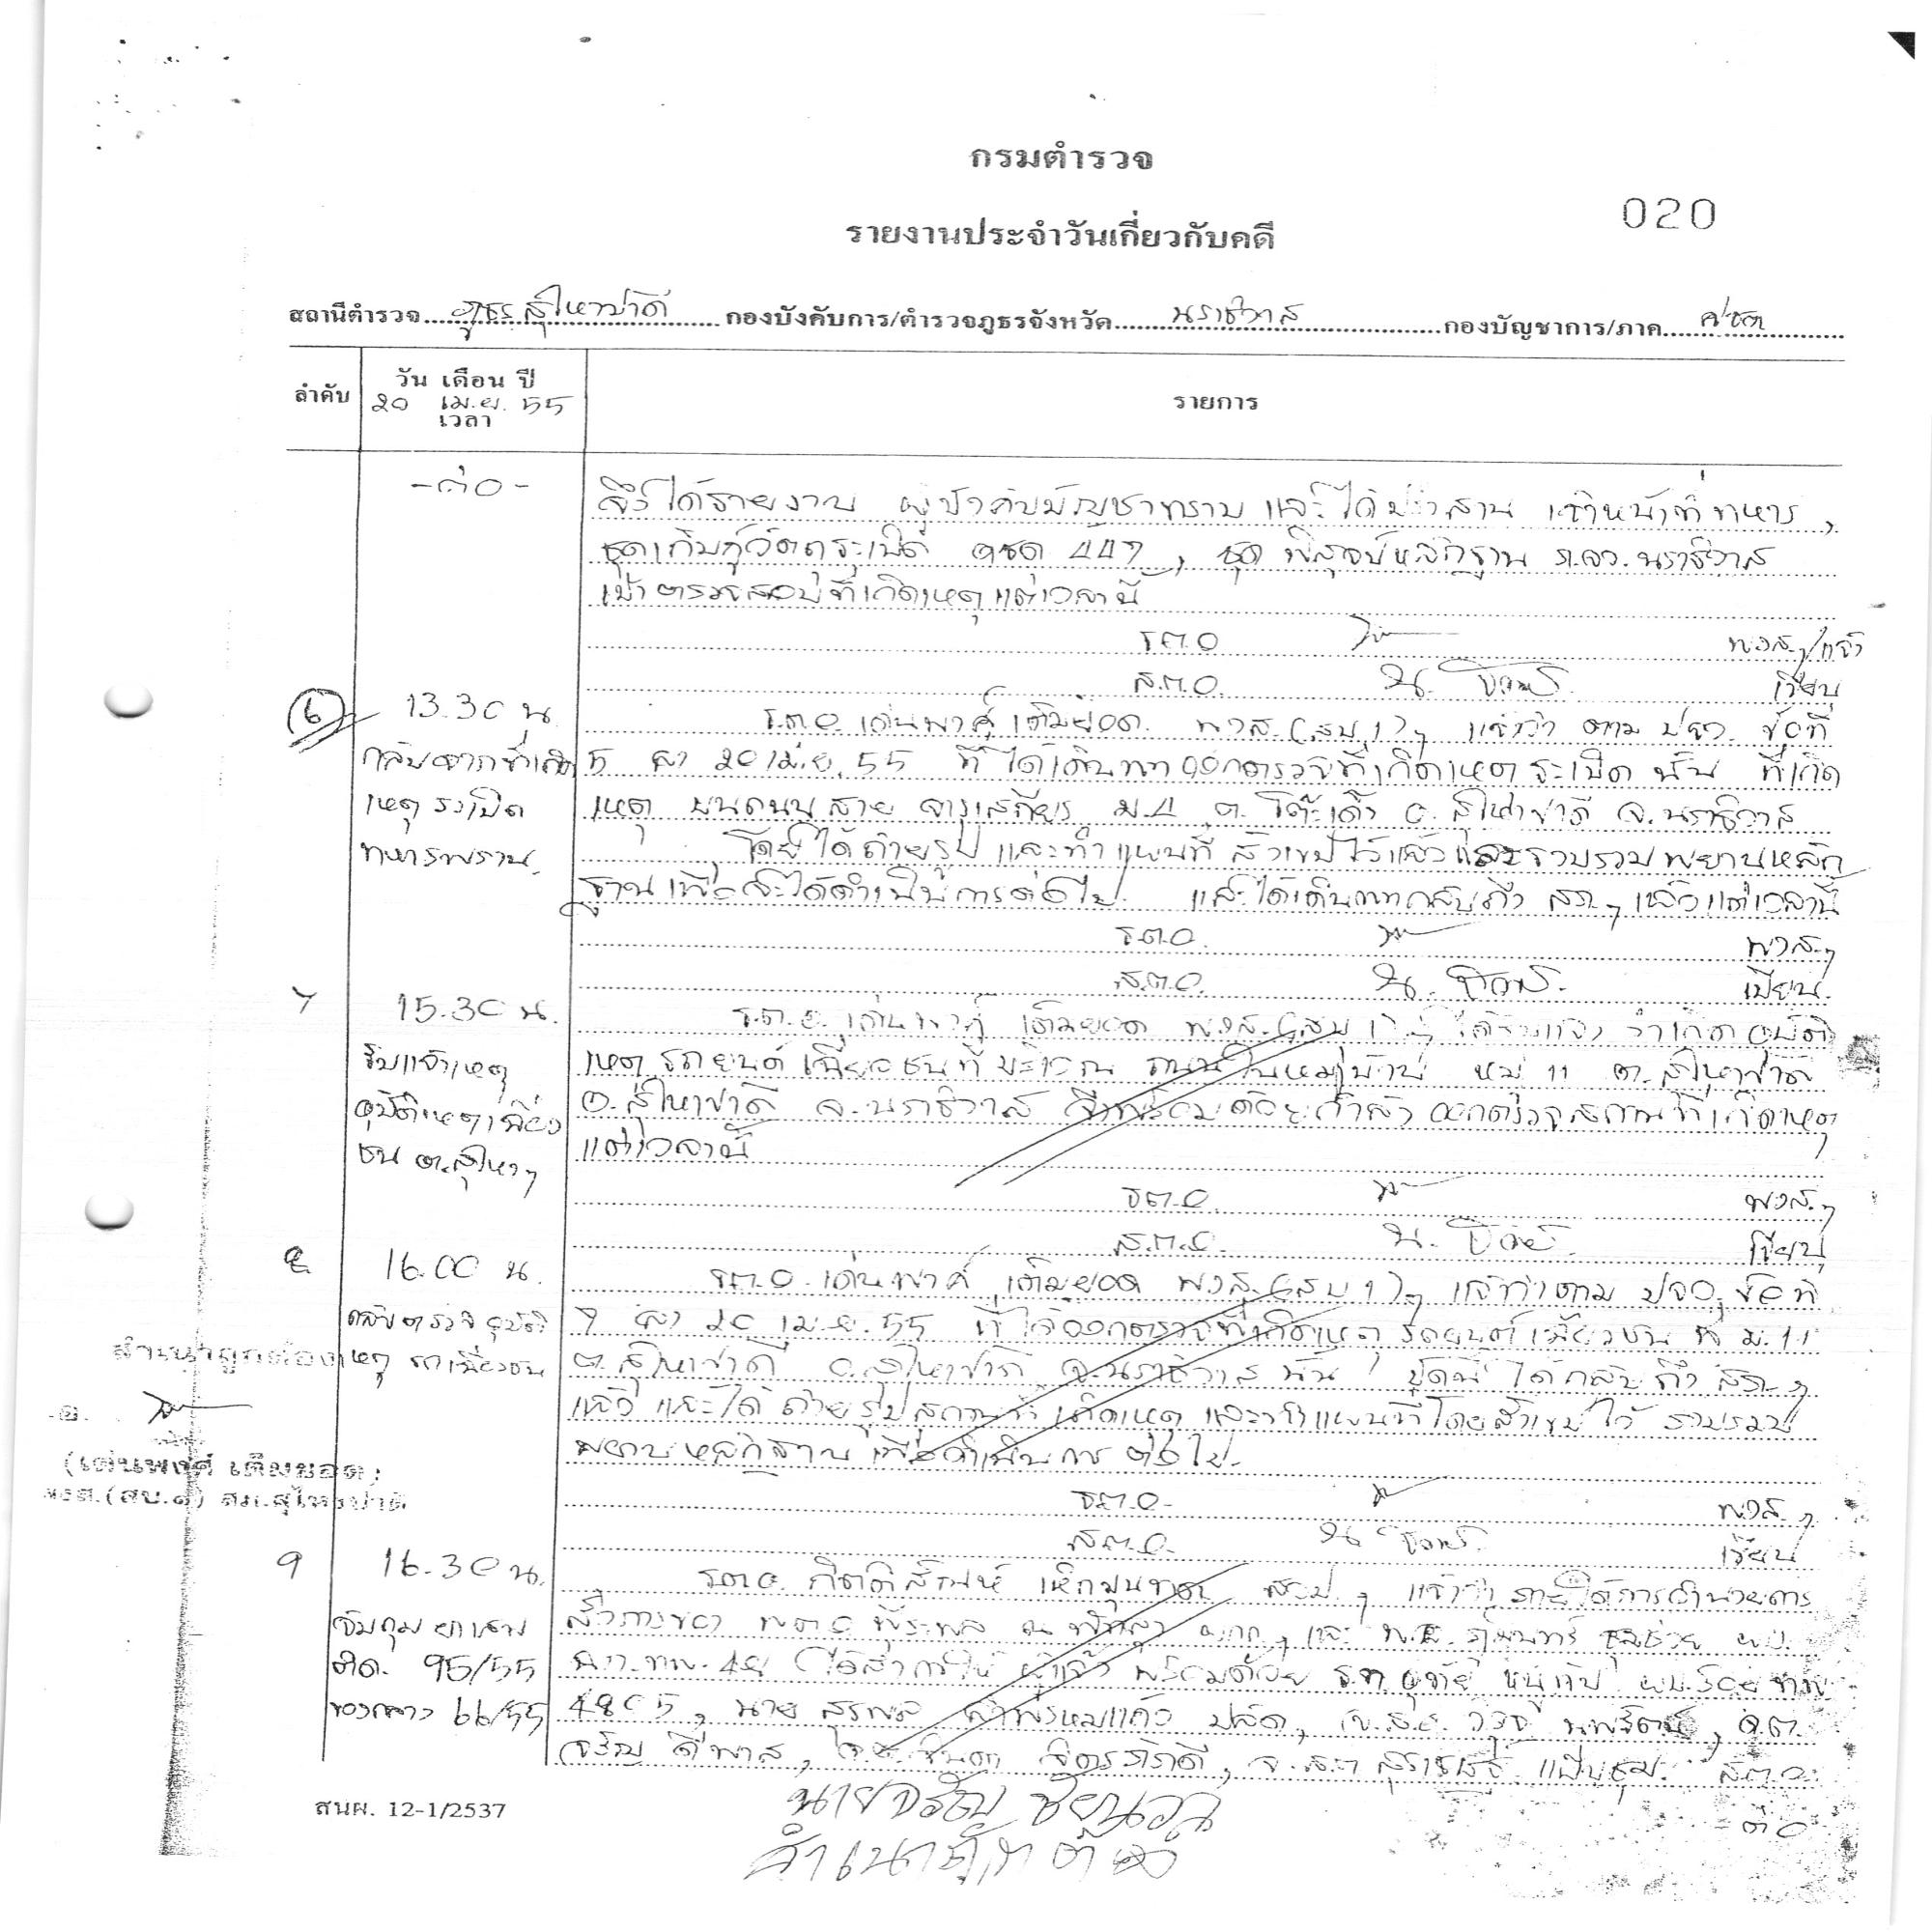 กรมตำรวจ
020
รายงานประจำวันเกี่ยวกับคดี
สถานีตำรวจ ภูธรสุไหงปาดี กองบังคับการ/ตำรวจภูธรจังหวัด นราธิวาส กองบัญชาการ/ภาค ศชต
ลำดับ
วัน เดือน ปี
20 เม.ย. 55
เวลา
รายการ
-ต่อ-
จึงได้รายงาน ผู้บังคับบัญชาทราบ และได้ประสาน เจ้าหน้าที่ทหาร,
ชุดเก็บกู้วัตถุระเบิด ตชด 447, ชุด พิสูจน์หลักฐาน ภ.จว.นราธิวาส
เข้าตรวจสอบที่เกิดเหตุแต่เวลานี้
ร.ต.อ พงส.ฯ/แจ้ง
ส.ต.อ. เขียน
6
13.30 น.
กลับจากที่เกิด
เหตุ ระเบิด
ทหารพราน
ร.ต.อ. เด่นพงศ์ เต็มยอด พงส.(สบ.1)ฯ แจ้งว่า ตาม ปจว. ข้อที่
5 ลง 20 เม.ย. 55 ที่ได้เดินทางออกตรวจที่เกิดเหตุระเบิด นั้น ที่เกิด
เหตุ บนถนนสาย จารุเสถียร ม.4 ต. โต๊ะเด็ง อ.สุไหงปาดี จ.นราธิวาส
โดยได้ถ่ายรูป และทำแผนที่ สังเขปไว้แล้ว และรวบรวมพยานหลัก
ฐานเพื่อจะได้ดำเนินการต่อไป และได้เดินทางกลับถึง สภ.ฯ แล้วแต่เวลานี้
ร.ต.อ. พงส.ฯ
ส.ต.อ. เขียน
7
15.30 น.
รับแจ้งเหตุ
อุบัติเหตุเฉี่ยว
ชน ต.สุไหงฯ
ร.ต.อ. เด่นพงศ์ เต็มยอด พงส.(สบ 1)ฯ ได้รับแจ้ง ว่าเกิด อุบัติ
เหตุ รถยนต์ เฉี่ยวชนที่ บริเวณ ถนนในหมู่บ้าน หมู่ 11 ต.สุไหงปาดี
อ.สุไหงปาดี จ.นราธิวาส จึงพร้อมด้วยกำลัง ออกตรวจสถานที่เกิดเหตุ
แต่เวลานี้
ร.ต.อ. พงส.ฯ
ส.ต.อ. เขียน
8
16.00 น.
กลับตรวจ อุบัติ
เหตุ รถเฉี่ยวชน
ร.ต.อ. เด่นพงศ์ เต็มยอด พงส.(สบ 1)ฯ แจ้งว่าตาม ปจว. ข้อที่
7 ลง 20 เม.ย. 55 ที่ได้ออกตรวจที่เกิดเหตุ รถยนต์เฉี่ยวชน ที่ ม.11
ต.สุไหงปาดี อ.สุไหงปาดี จ.นราธิวาส นั้น บัดนี้ ได้กลับถึง สภ.ฯ
แล้ว และได้ ถ่ายรูปสถานที่เกิดเหตุ และทำแผนที่โดยสังเขปไว้ รวบรวม
พยานหลักฐาน เพื่อดำเนินการ ต่อไป.
สำเนาถูกต้อง
(เด่นพงศ์ เต็มยอด)
พงส.(สบ.๑) สภ.สุไหงปาดี
ร.ต.อ. พงส.ฯ
ส.ต.อ. เขียน
9
16.30 น.
จับกุม ยาเสพ
ติด. 95/55
ของกลาง 66/55
ร.ต.อ. แจ้งว่า ภายใต้การอำนวยการ
สั่งการของ พ.ต.อ. และ
ได้สั่งการให้ ผู้แจ้ง พร้อมด้วย
4805, นาย สุรพล ปลัด,
สนผ. 12-1/2537
ส.ต.อ.
ต่อ
สำเนาถูกต้อง